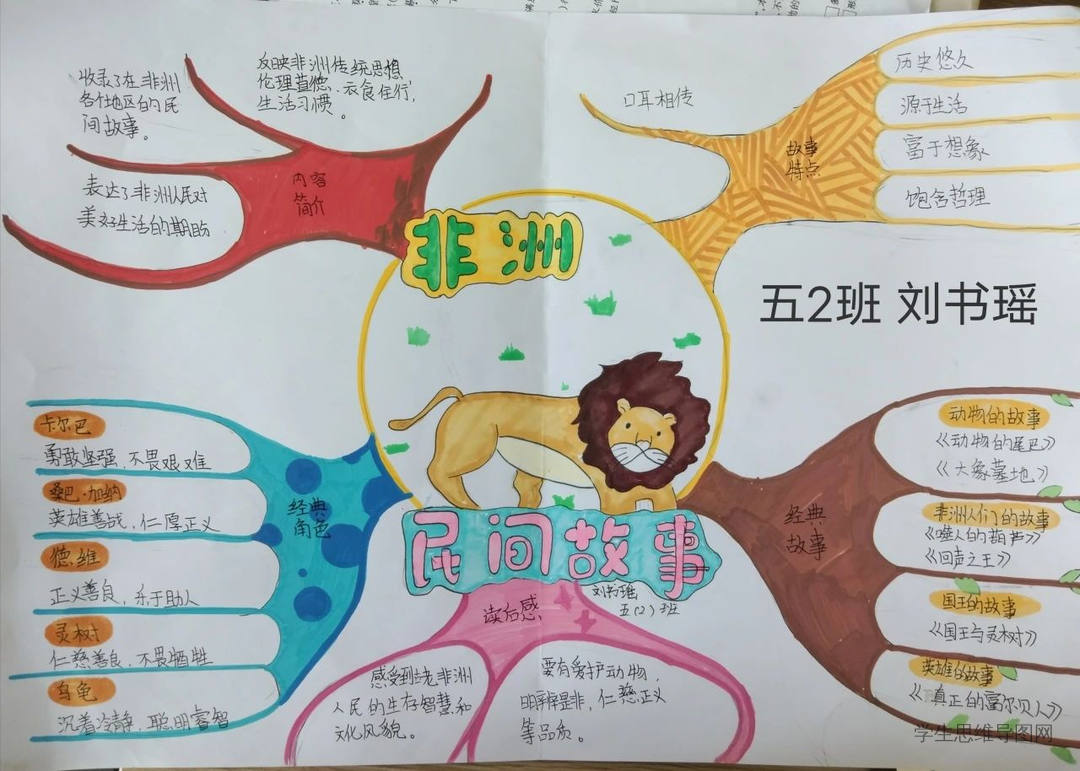 非洲
民间故事
刘书瑶
五(2)班
五2班 刘书瑶
内容
简介
收录了在非洲
各个地区的民
间故事。
反映非洲传统思想,
伦理道德、衣食住行,
生活习惯。
表达了非洲人民对
美好生活的期盼
故事
特点
口耳相传
历史悠久
源于生活
富于想象
饱含哲理
经典
角色
卡尔巴
勇敢坚强,不畏艰难
桑巴·加纳
英雄善战,仁厚正义
德维
正义善良,乐于助人
灵树
仁慈善良,不畏牺牲
乌龟
沉着冷静,聪明睿智
经典
故事
动物的故事
《动物的尾巴》
《大象墓地》
非洲人们的故事
《猎人的葫芦》
《回声之王》
国王的故事
《国王与灵树》
英雄的故事
《真正的富尔贝人》
读后感
感受到非洲
人民的生存智慧和
文化风貌。
要有爱护动物,
明辨是非,仁慈正义
等品质。
学生思维导图网